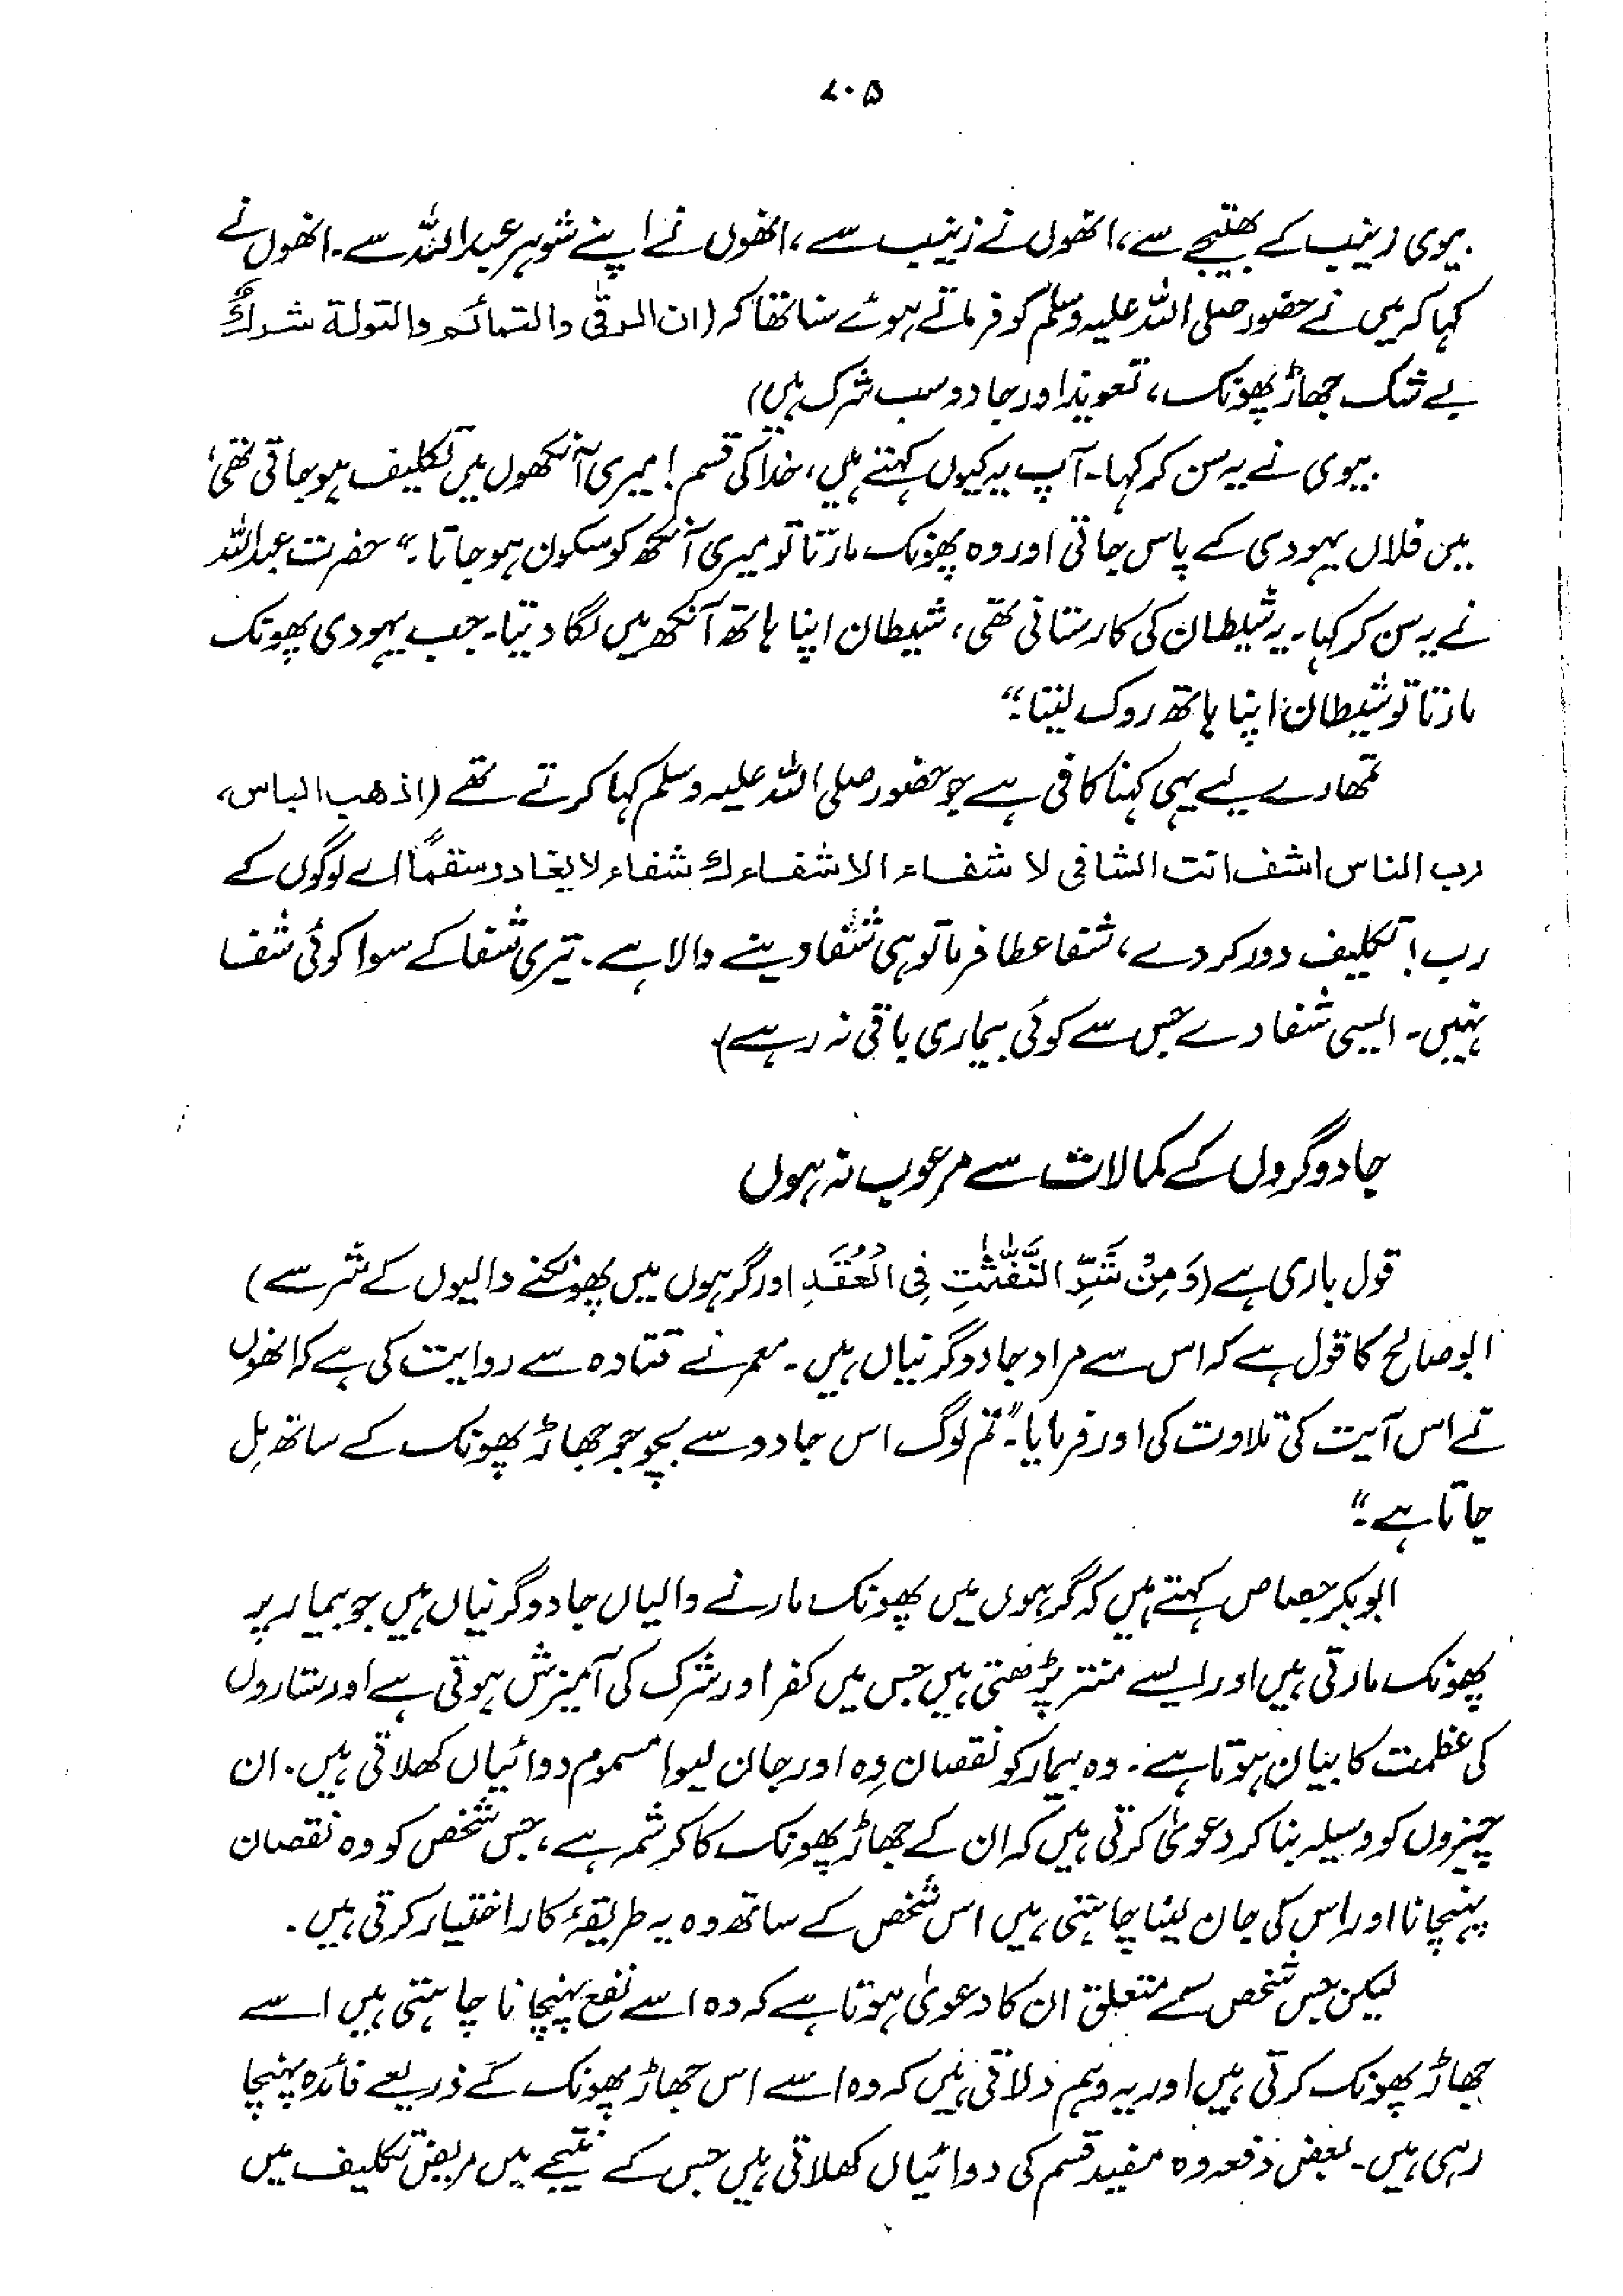 ۷۰۵
بیوی زینب کے بھتیجے سے، انھوں نے زینب سے، انھوں نے اپنے شوہر عبداللہ سے۔ انھوں نے
کہا کہ میں نے حضور صلی اللہ علیہ وسلم کو فرماتے ہوئے سنا تھا کہ (ان الرقٰی والتمائم والتولة شركٌ
بے شک جھاڑ پھونک، تعویذ اور جادو سب شرک ہیں)
بیوی نے یہ سن کر کہا۔ آپ یہ کیوں کہتے ہیں، خدا کی قسم! میری آنکھوں میں تکلیف ہو جاتی تھی،
میں فلاں یہودی کے پاس جاتی اور وہ پھونک مارتا تو میری آنکھ کو سکون ہو جاتا۔“ حضرت عبداللہ
نے یہ سن کر کہا۔ یہ شیطان کی کارستانی تھی، شیطان اپنا ہاتھ آنکھ میں لگا دیتا۔ جب یہودی پھونک
مارتا تو شیطان اپنا ہاتھ روک لیتا۔“
تمھارے لیے یہی کہنا کافی ہے جو حضور صلی اللہ علیہ وسلم کہا کرتے تھے (اذهب الباس،
رب الناس اشف انت الشافی لا شفاء الا شفاءك شفاء لا يغادر سقمًا اے لوگوں کے
رب! تکلیف دور کر دے، شفا عطا فرما تو ہی شفا دینے والا ہے۔ تیری شفا کے سوا کوئی شفا
نہیں۔ ایسی شفا دے جس سے کوئی بیماری باقی نہ رہے)
جادوگروں کے کمالات سے مرعوب نہ ہوں
قول باری ہے (وَمِنْ شَرِّ النَّفّٰثٰتِ فِی الْعُقَدِ اور گرہوں میں پھونکنے والیوں کے شر سے)
ابو صالح کا قول ہے کہ اس سے مراد جادوگرنیاں ہیں۔ معمر نے قتادہ سے روایت کی ہے کہ انھوں
نے اس آیت کی تلاوت کی اور فرمایا۔“ تم لوگ اس جادو سے بچو جو جھاڑ پھونک کے ساتھ مِل
جاتا ہے۔“
ابوبکر جصاص کہتے ہیں کہ گرہوں میں پھونک مارنے والیاں جادوگرنیاں ہیں جو بیمار پر
پھونک مارتی ہیں اور ایسے منتر پڑھتی ہیں جس میں کفر اور شرک کی آمیزش ہوتی ہے اور ستاروں
کی عظمت کا بیان ہوتا ہے۔ وہ بیمار کو نقصان دِہ اور جان لیوا مسموم دوائیاں کھلاتی ہیں۔ ان
چیزوں کو وسیلہ بنا کر دعویٰ کرتی ہیں کہ ان کے جھاڑ پھونک کا کرشمہ ہے، جس شخص کو وہ نقصان
پہنچانا اور اس کی جان لینا چاہتی ہیں اس شخص کے ساتھ وہ یہ طریقۂ کار اختیار کرتی ہیں۔
لیکن جس شخص کے متعلق ان کا دعویٰ ہوتا ہے کہ وہ اسے نفع پہنچانا چاہتی ہیں اسے
جھاڑ پھونک کرتی ہیں اور یہ وہم دلاتی ہیں کہ وہ اسے اس جھاڑ پھونک کے ذریعے فائدہ پہنچا
رہی ہیں۔ بعض دفعہ وہ مفید قسم کی دوائیاں کھلاتی ہیں جس کے نتیجے میں مریض تکلیف میں